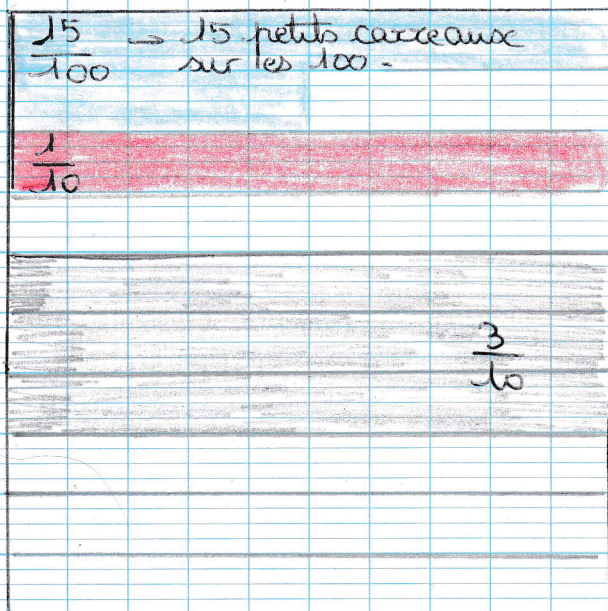 15/100 → 15 petits carreaux
sur les 100.
1/10
3/10